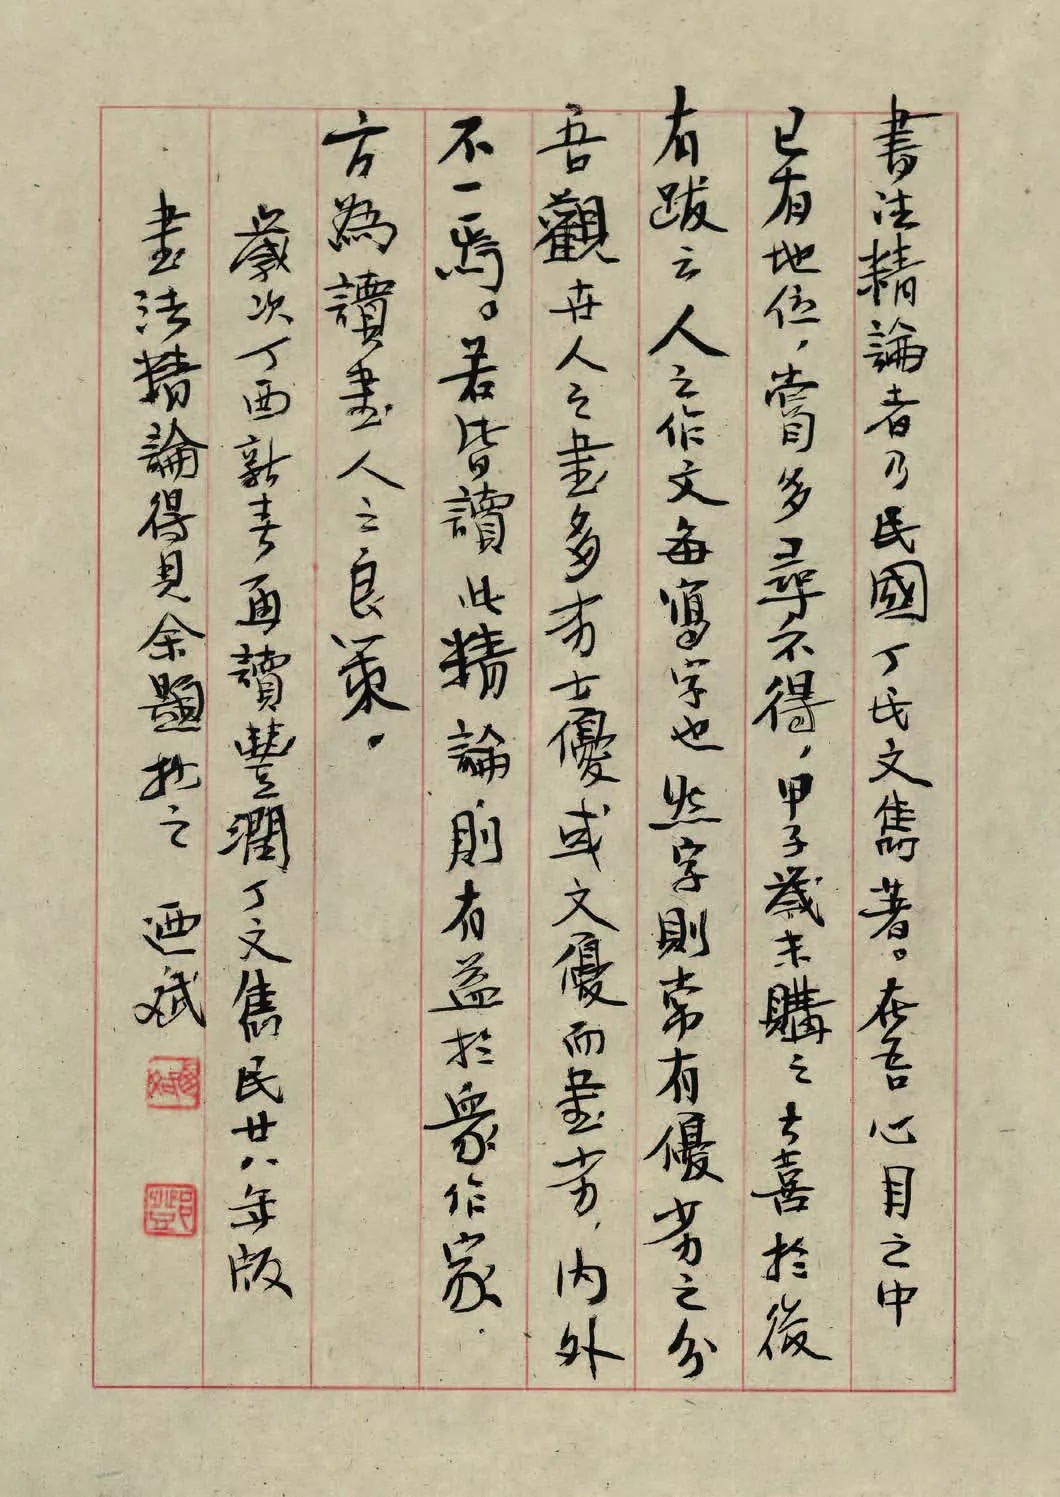 書法精論者乃民國丁氏文雋著。在吾心目之中
已有地位，嘗多尋不得，甲子歲末購之大喜於後
有跋云人之作文每寫字也然字則常有優劣之分
吾觀世人之書多劣士優或文優而書劣，内外
不一焉。若皆讀此精論則有益於衆作家．
方為讀書人之良策。
歲次丁酉新春再讀豐潤丁文雋民廿八年版
書法精論得見余題抄之 迺斌